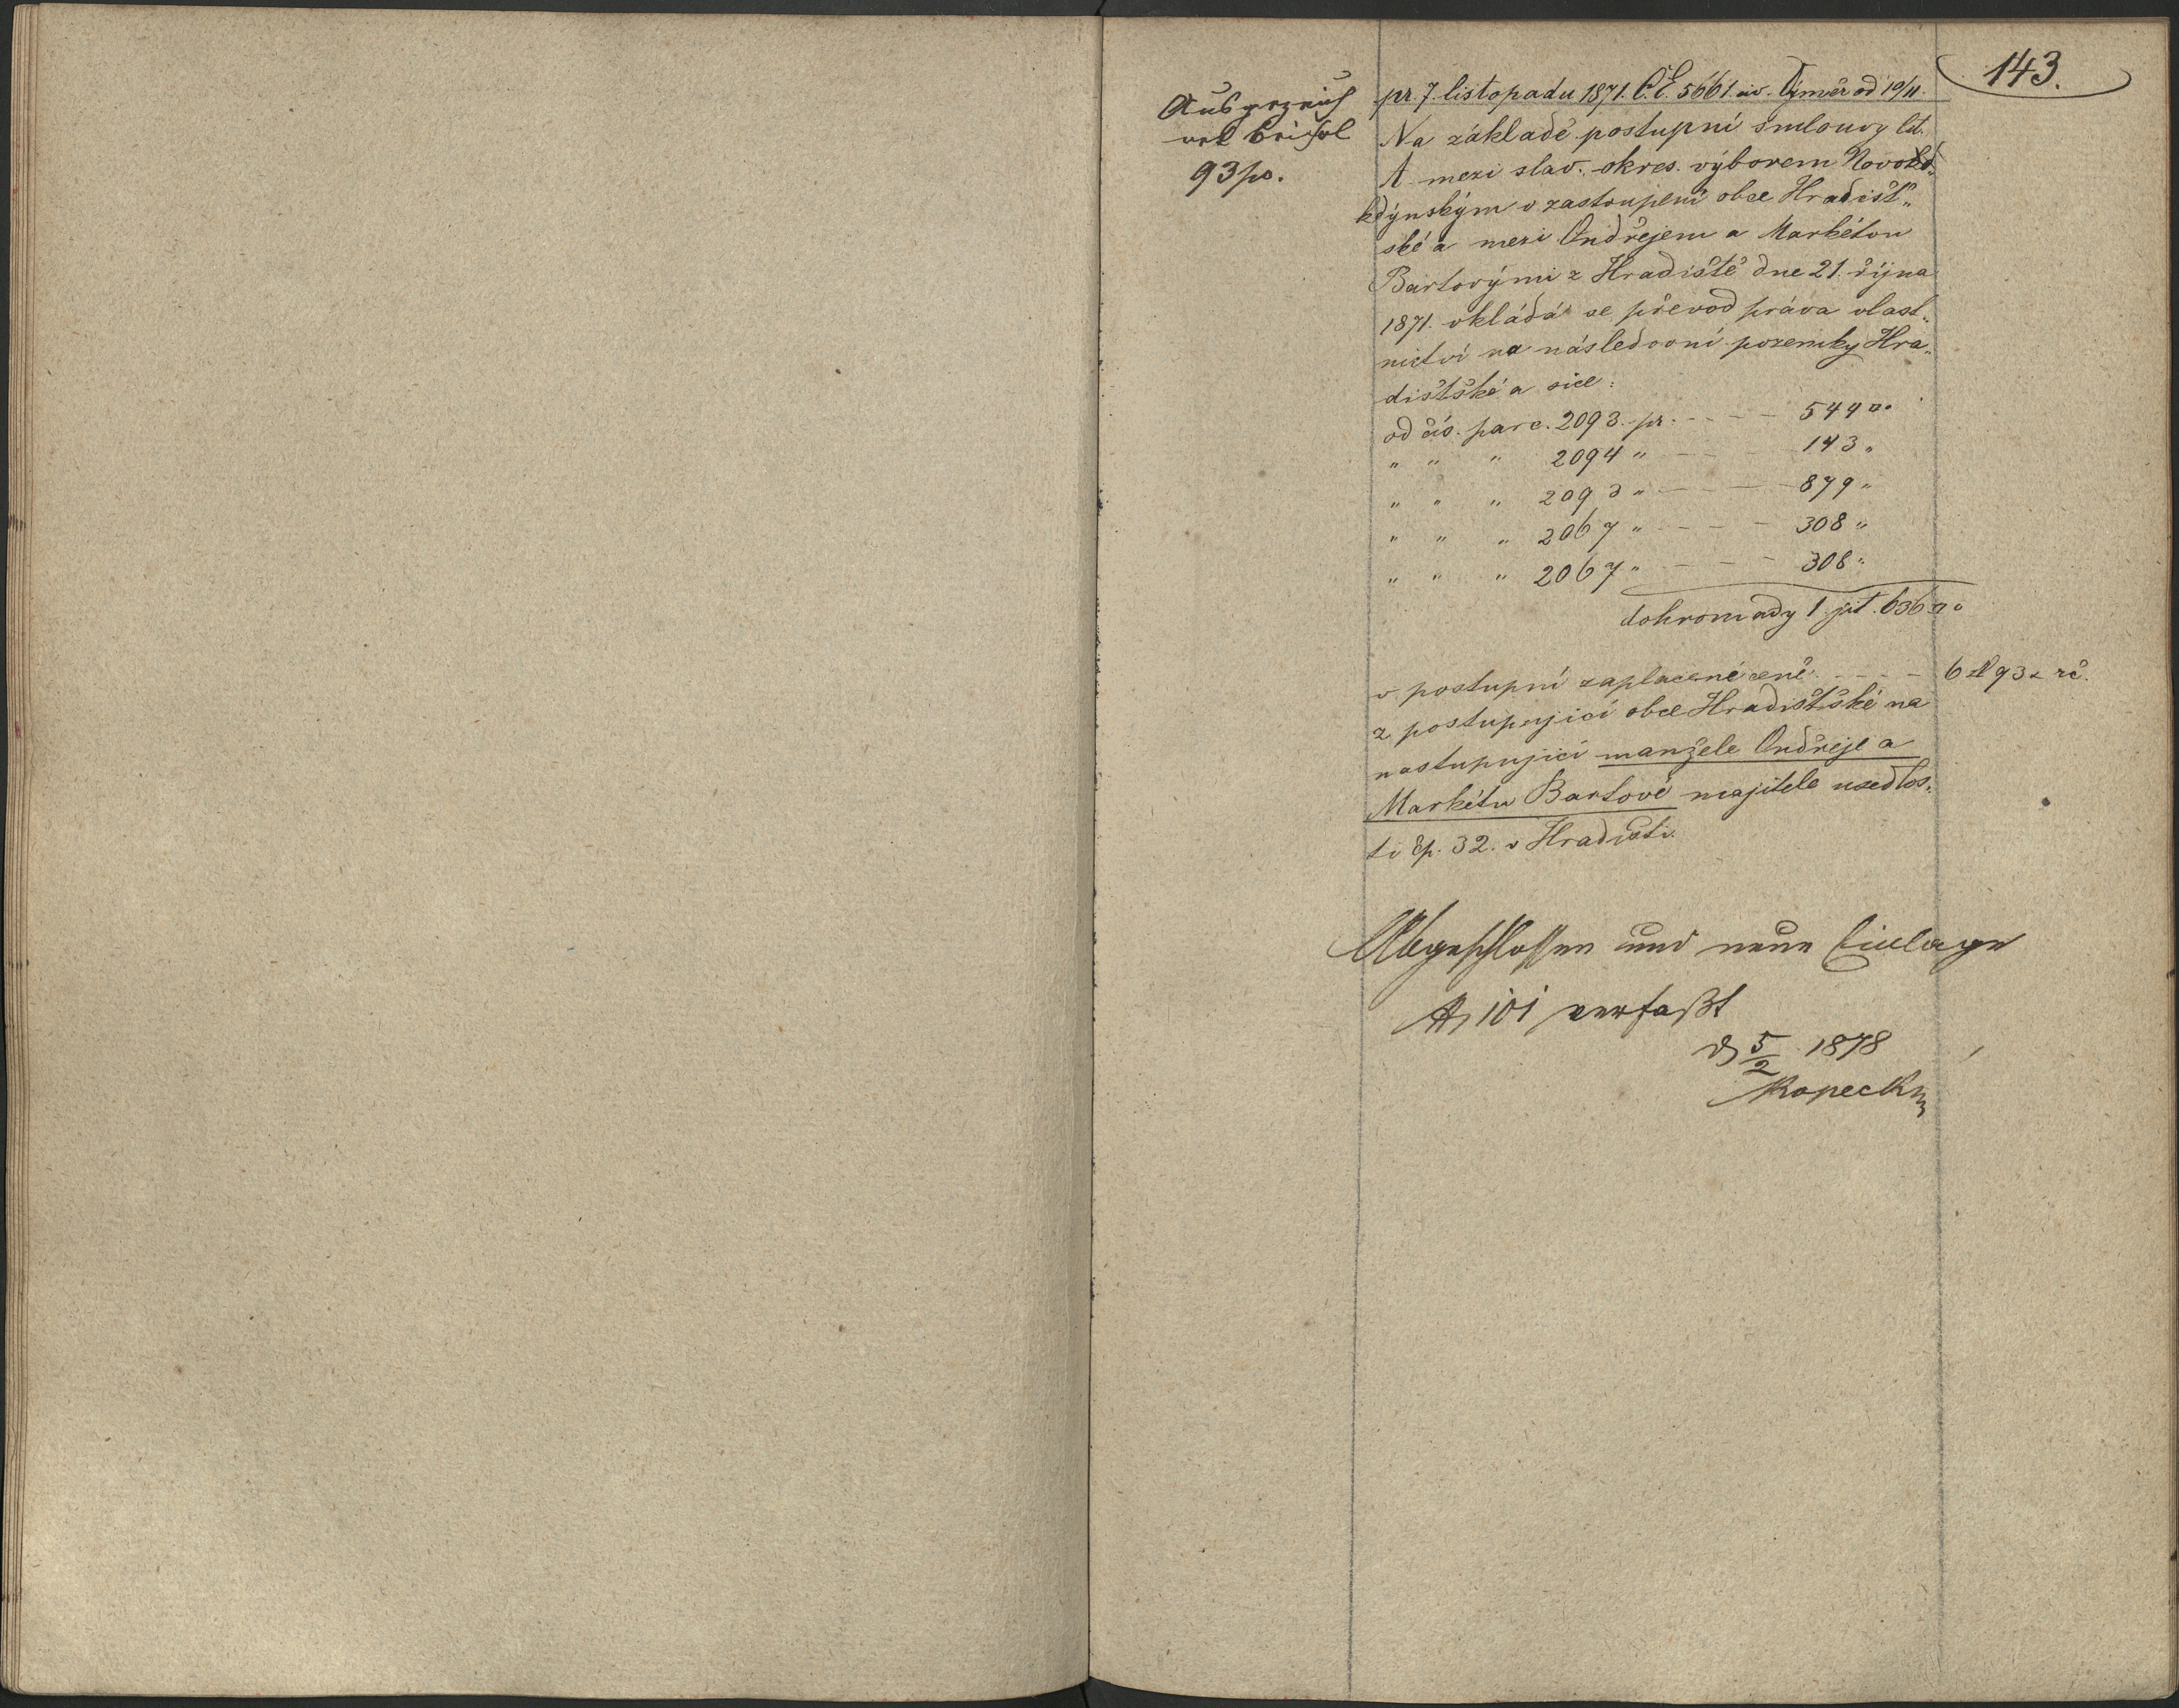 143.
93 ps.
pr. 7. listopadu 1871. Č.E. 5661 civ. Výměr od 10/11.
Na základě postupní smlouvy lit.
A mezi slav. okres. výborem Novok
kdýnským v zastoupení obce Hradišť„
ské a mezi Ondřejem a Markétou
Bartovými z Hradiště dne 21. října
1871. vkládá se převod práva vlast„
nictví na následovní pozemky Hra„
dišťské a sice:
od čís. parc. 2093 pr. - - - - 544 □°
„ „ „ 2094 „ - - - 143 „
„ „ „ 2093 „ - - - 879 „
„ „ „ 2067 „ - - - - 308 „
„ „ „ 2067 „ - - - - 308 „
dohromady 1 jit. 636 □°
v postupní zaplacené ceně - - - - 6 zl 93 x rč.
z postupující obce Hradišťské na
nastupující manžele Ondřeje a
Markétu Bartové majitele usedlos„
ti čp. 32. v Hradišti.
Abgeschlossen und neue Einlage
101 verfaßt
5/2 1878
Kopecky